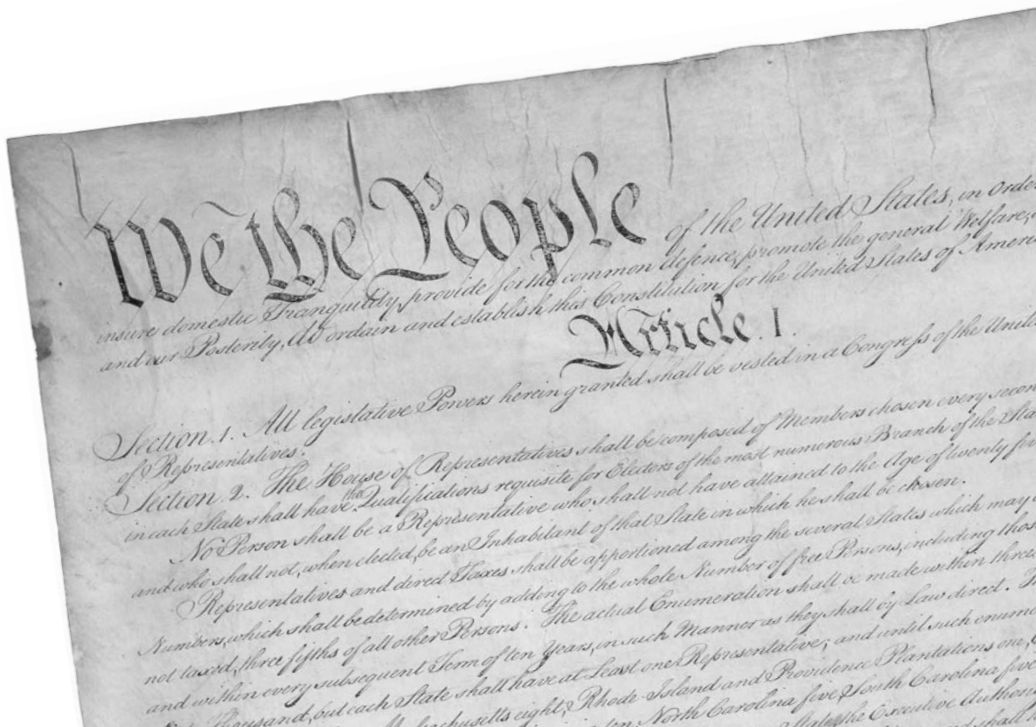 We the People of the United States, in Orde
insure domestic Tranquility, provide for the common defence, promote the general Welfare,
and our Posterity, do ordain and establish this Constitution for the United States of Ameri
Article. I.
Section. 1. All legislative Powers herein granted shall be vested in a Congress of the Unit
of Representatives.
Section. 2. The House of Representatives shall be composed of Members chosen every secon
in each State shall have the Qualifications requisite for Electors of the most numerous Branch of the Sta
No Person shall be a Representative who shall not have attained to the Age of twenty fi
and who shall not, when elected, be an Inhabitant of that State in which he shall be chosen.
Representatives and direct Taxes shall be apportioned among the several States which may
Numbers, which shall be determined by adding to the whole Number of free Persons, including tho
not taxed, three fifths of all other Persons. The actual Enumeration shall be made within thre
and within every subsequent Term of ten Years, in such Manner as they shall by Law direct. T
Thousand, but each State shall have at Least one Representative; and until such enum
eight, Rhode-Island and Providence Plantations one,
ten North Carolina five South Carolina five
the Executive Author